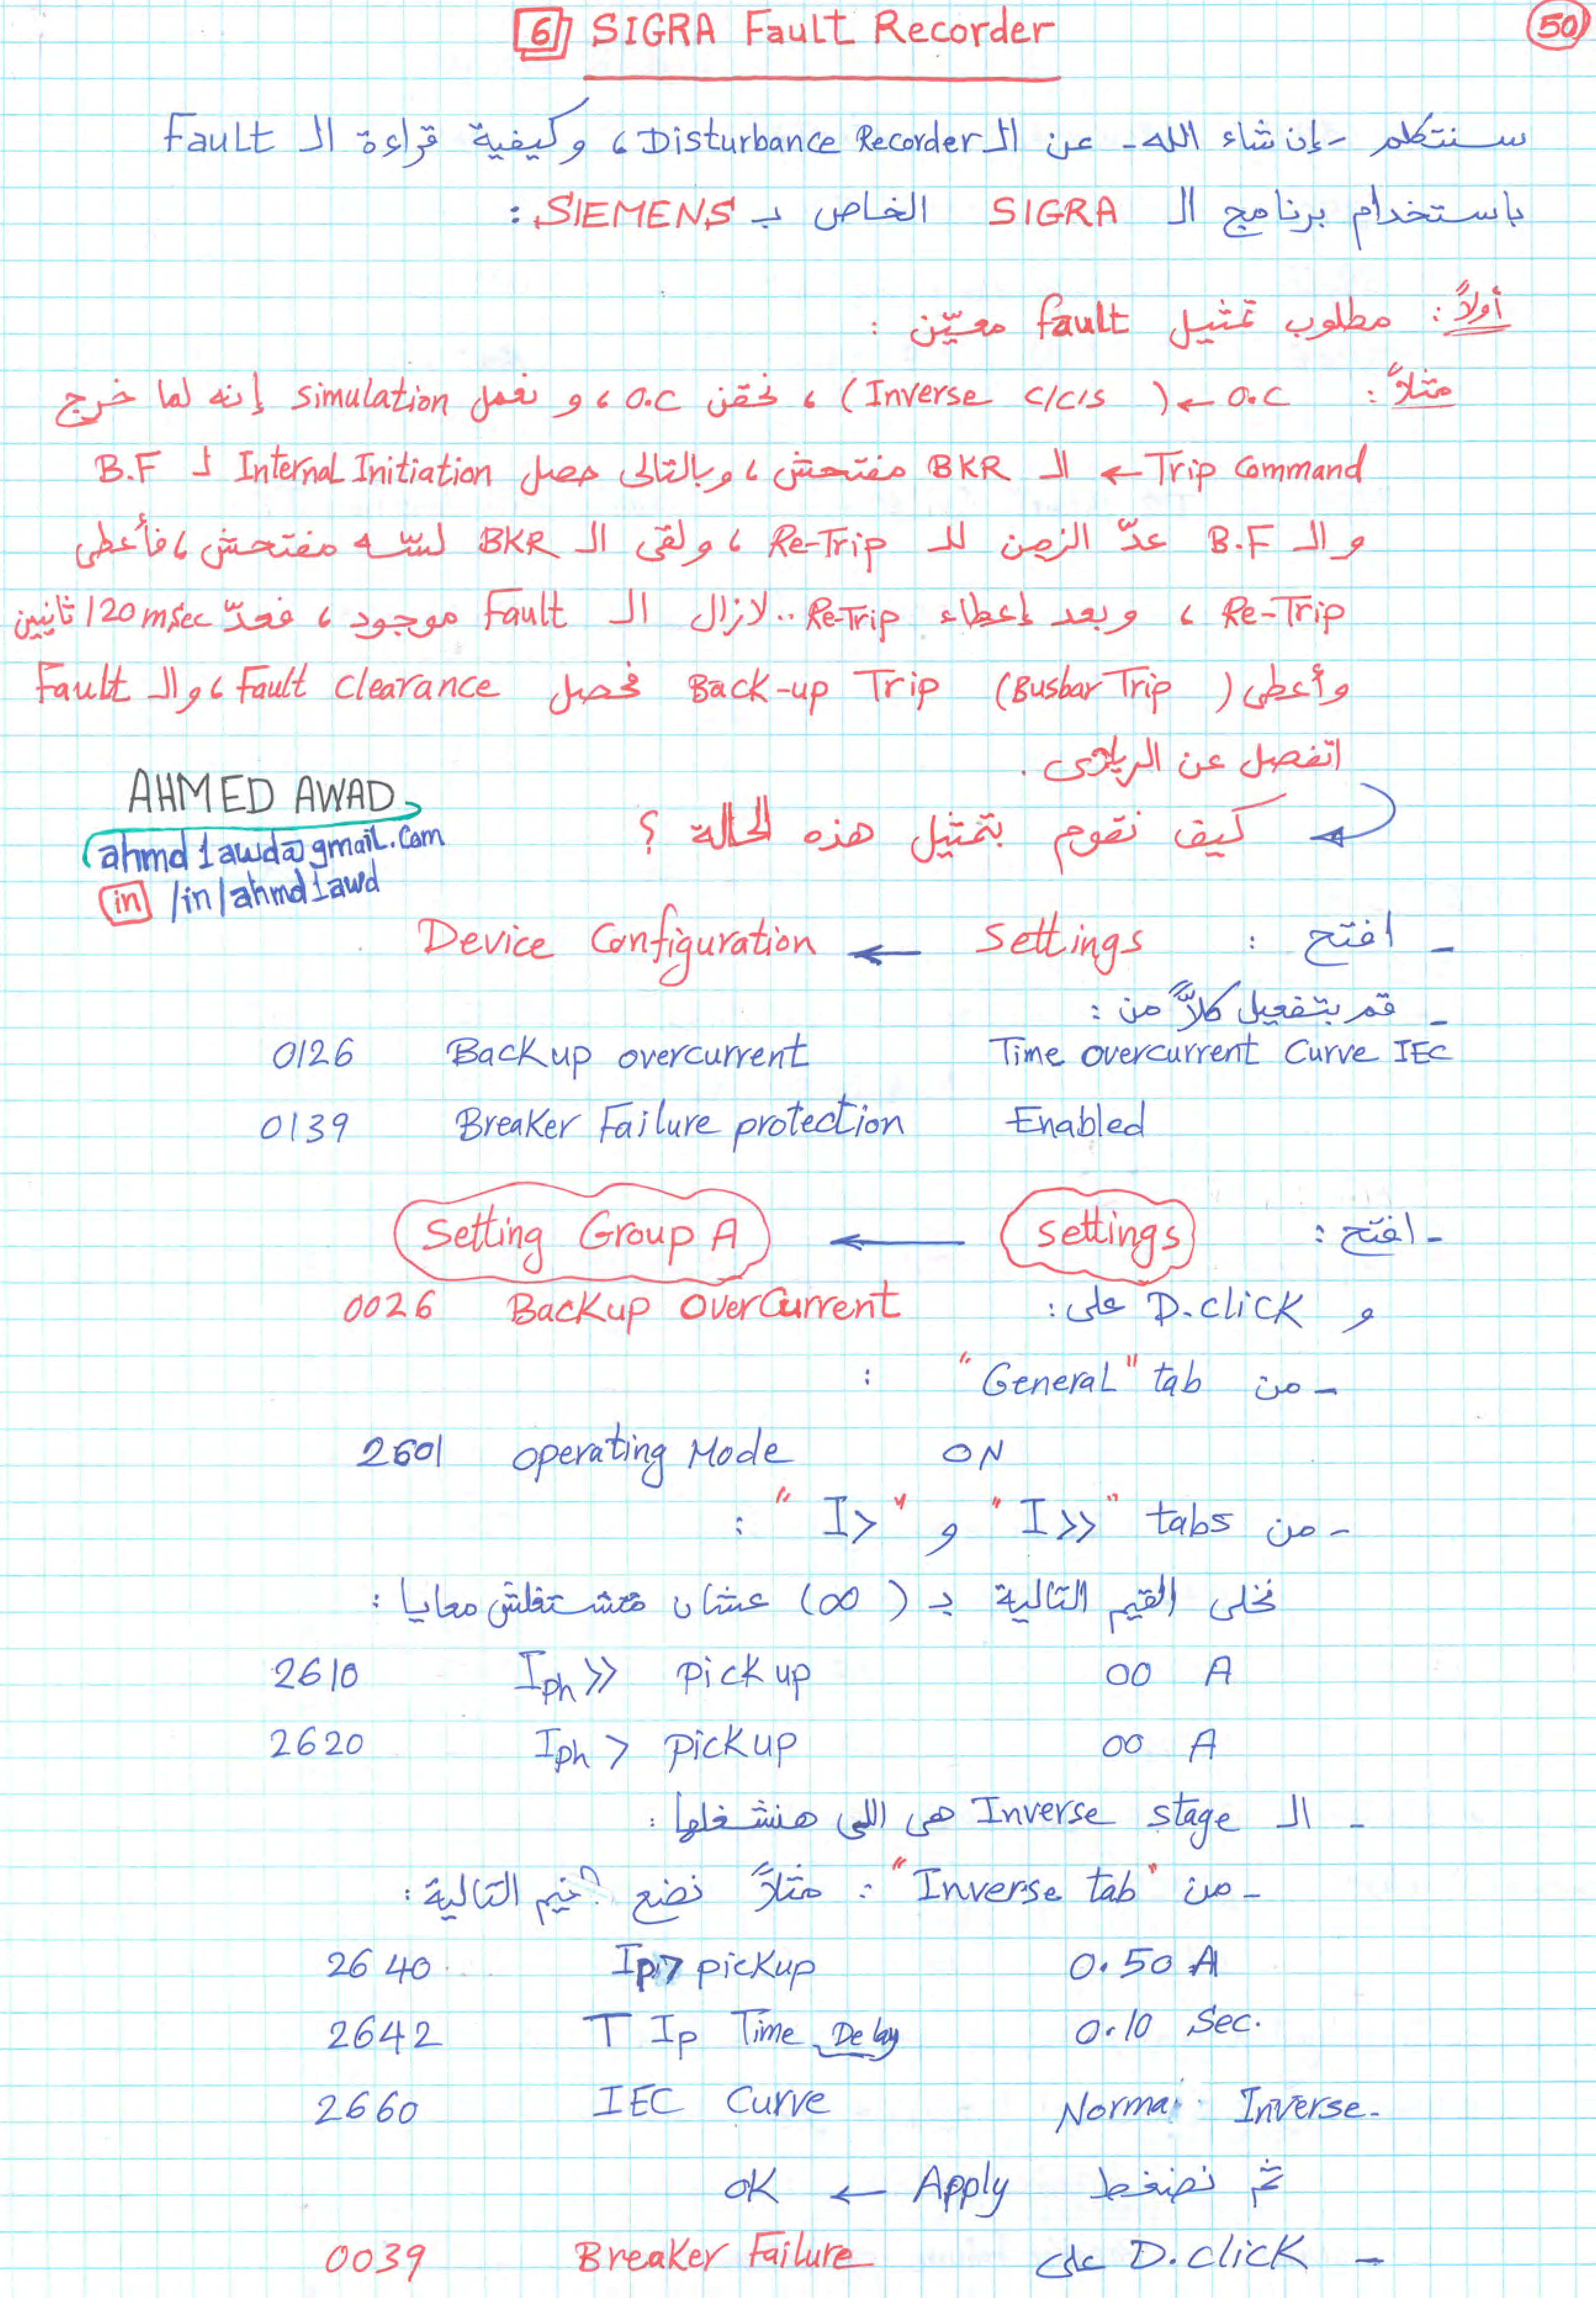 6 SIGRA Fault Recorder
50
سنتكلم -إن شاء الله- عن الـ Disturbance Recorder، وكيفية قراءة الـ Fault
باستخدام برنامج الـ SIGRA الخاص بـ SIEMENS:
أولاً: مطلوب تمثيل fault معيّن :
مثلاً: O.C ← (Inverse c/c/s) ، نحقن O.C ، و نعمل simulation إنه لما خرج
Trip Command ← الـ BKR مفتحش ، وبالتالى حصل Internal Initiation لـ B.F
و الـ B.F عدّ الزمن للـ Re-Trip ، ولقى الـ BKR لسّه مفتحش ، فأعطى
Re-Trip ، وبعد إعطاء Re-Trip .. لازال الـ Fault موجود ، فعدّ 120 msec تانيين
وأعطى (Busbar Trip) Back-up Trip فحصل Fault Clearance ، والـ Fault
اتفصل عن الريلاى .
كيف نقوم بتمثيل هذه الحالة ؟
AHMED AWAD
ahmd1awd@gmail.com
in /in/ahmd1awd
- افتح : Settings ← Device Configuration
- قم بتفعيل كلاً من :
0126 Backup overcurrent Time overcurrent Curve IEC
0139 Breaker Failure protection Enabled
- افتح : settings ← Setting Group A
و D.click على: 0026 Backup OverCurrent
- من "General" tab :
2601 operating Mode ON
- من "I>>" tabs و "I>" :
نخلى القيم التالية بـ (∞) عشان متشتغلش معايا :
2610 Iph>> Pickup ∞ A
2620 Iph> Pickup ∞ A
- الـ Inverse stage هى اللى هنشغلها :
- من "Inverse tab" : مثلاً نضع القيم التالية :
2640 Ip> pickup 0.50 A
2642 T Ip Time Delay 0.10 Sec.
2660 IEC Curve Normal Inverse
ثم نضغط Apply ← OK
- D.click على 0039 Breaker Failure